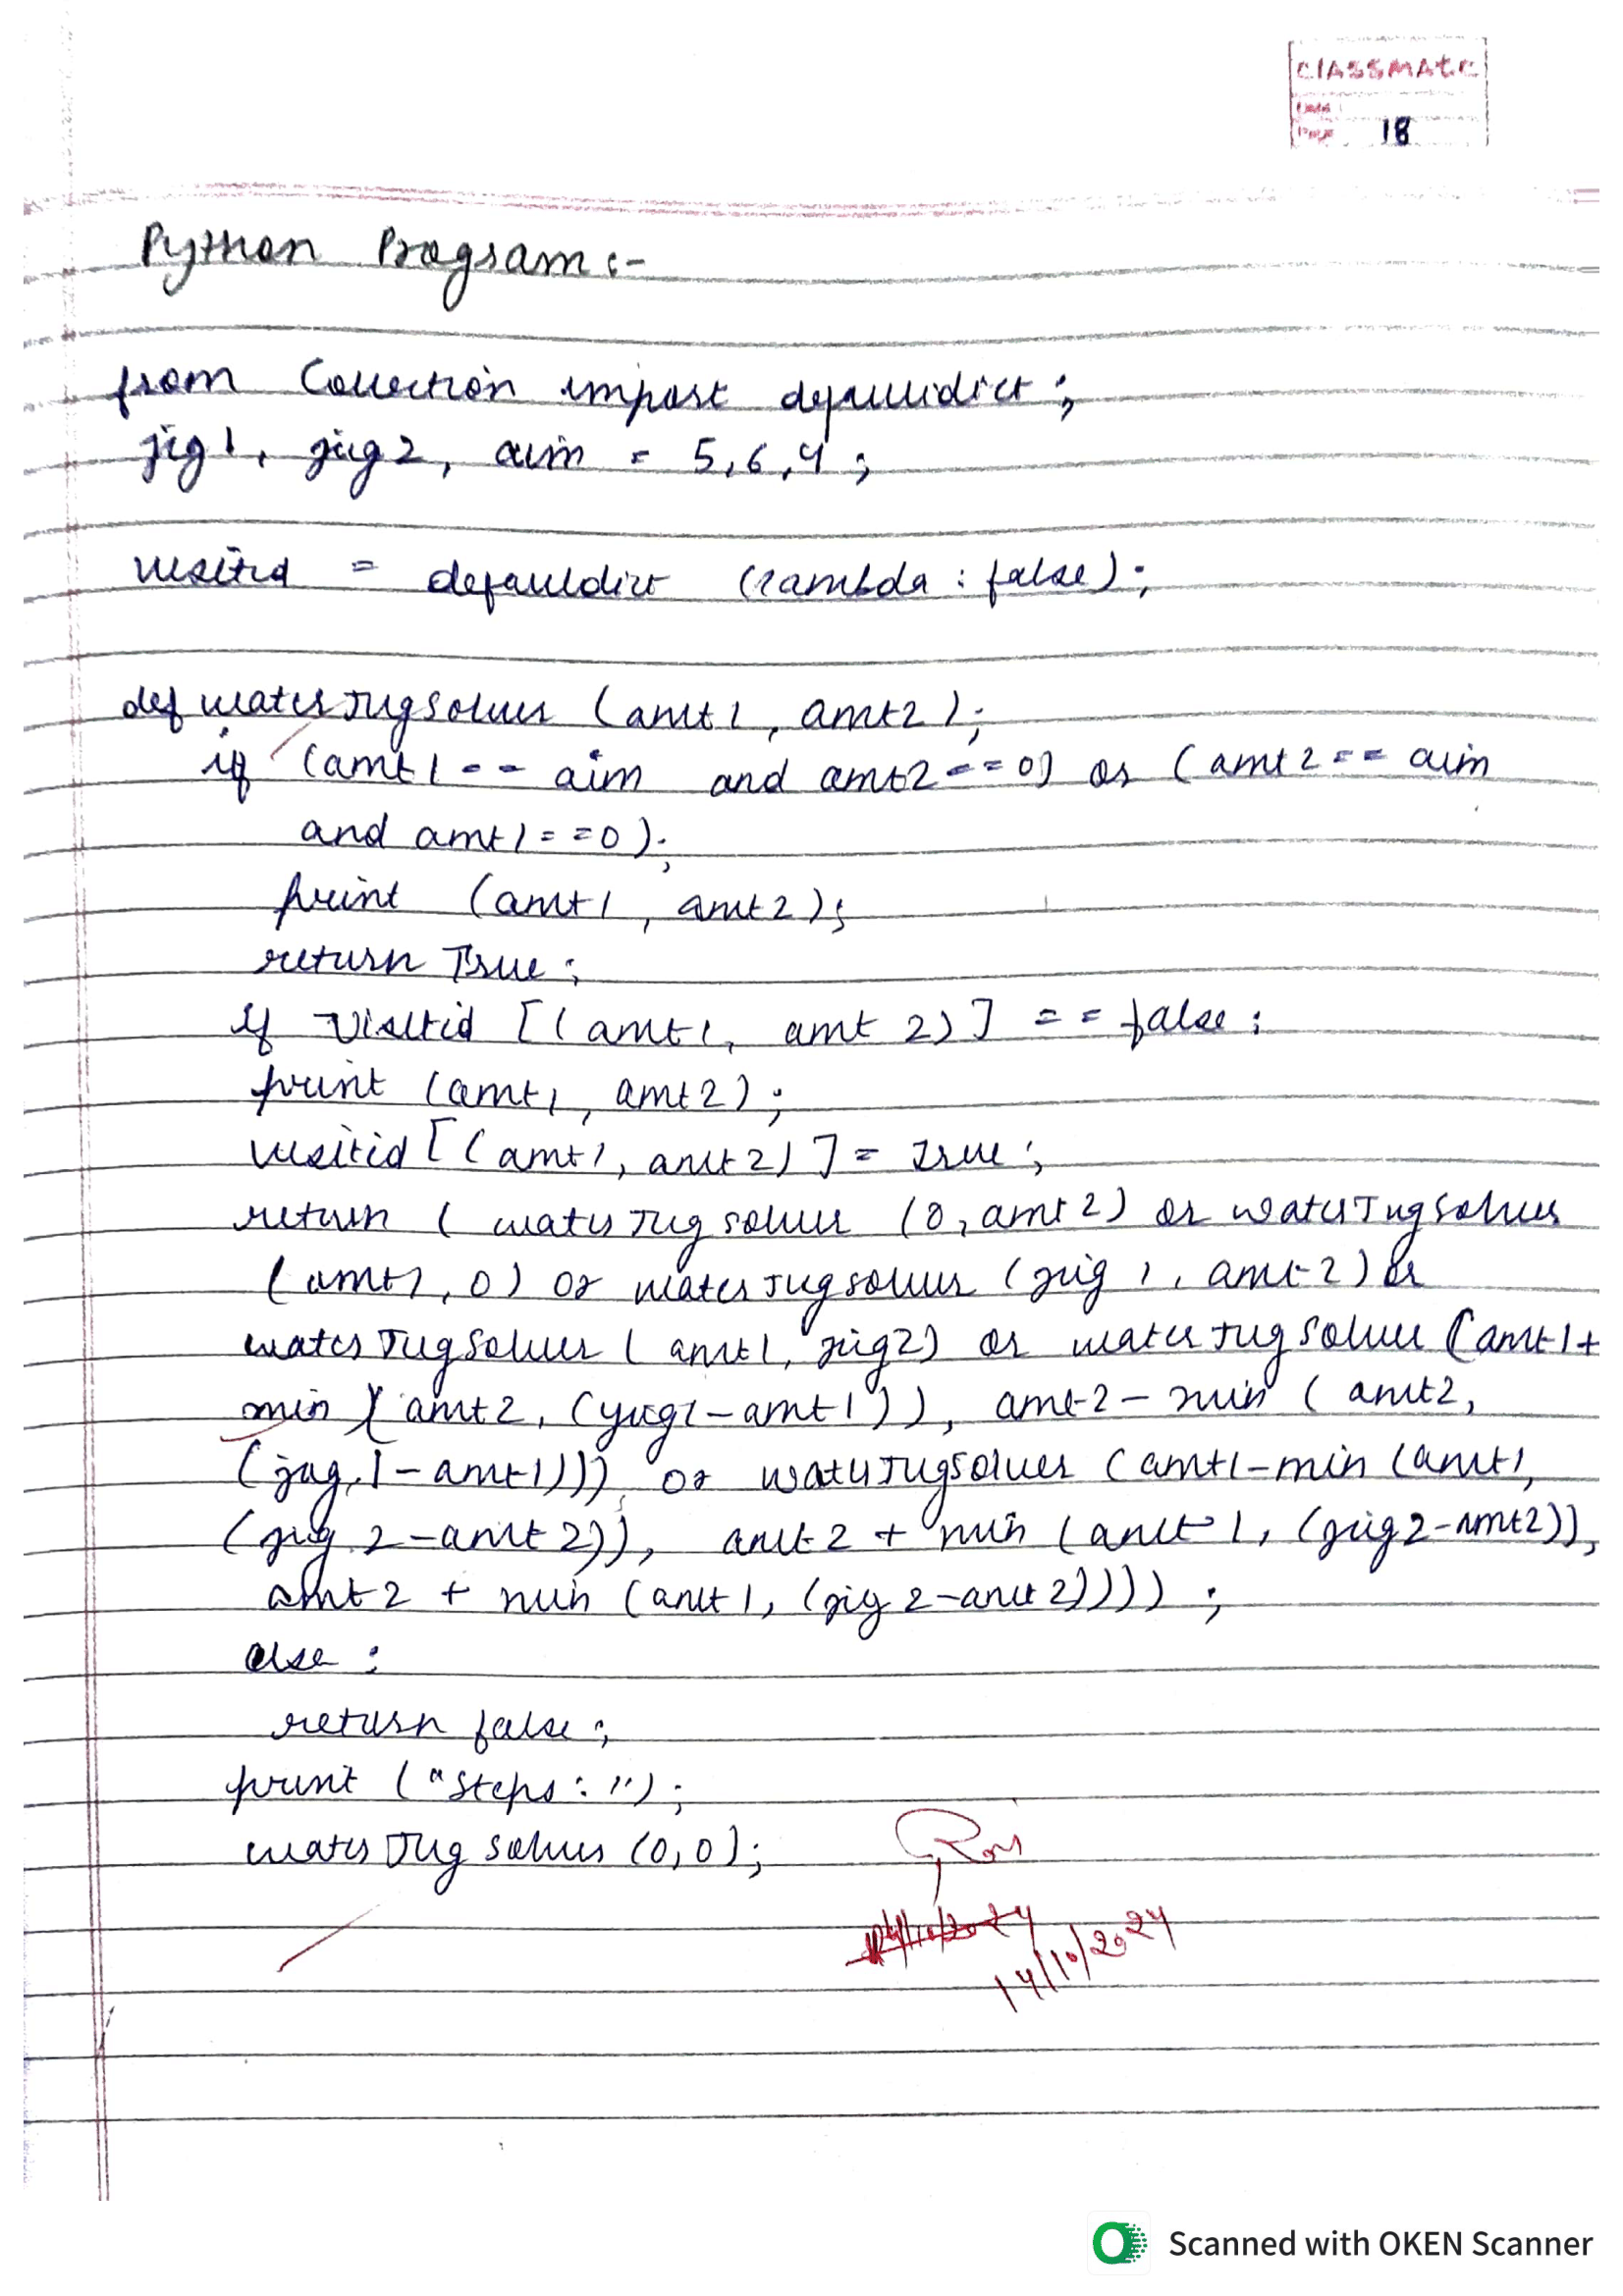 classmate
Date
Page 18
Python Program :-
from Collection import defaultdict ;
jig1, jug2, aim = 5,6,4 ;
visitid = defauldict (lambda : false) ;
def waterJugsolver (amt1, amt2) ;
if (amt1 == aim and amt2 == 0) or (amt2 == aim
and amt1 == 0) ;
print (amt1, amt2) ;
return True ;
if visitid [(amt1, amt 2)] == false :
print (amt1, amt2) ;
visitid [(amt1, amt2)] = True ;
return ( waterJugsolver (0, amt2) or waterJugsolver
(amt1, 0) or waterJugsolver (jug 1, amt2) or
waterJugsolver ( amt1, jug2) or waterJugsolver (amt1 +
min ( amt2, (jug1 - amt1)), amt2 - min ( amt2,
(jug 1 - amt1))) or waterJugsolver (amt1 - min (amt1,
(jug 2 - amt 2)), amt 2 + min (amt 1, (jug 2 - amt2)),
amt 2 + min (amt 1, (jig 2 - amt 2)))) ;
else :
return false ;
print ("Steps : ") ;
waterJug solver (0,0) ;
14/10/2024
14/10/2024
Scanned with OKEN Scanner